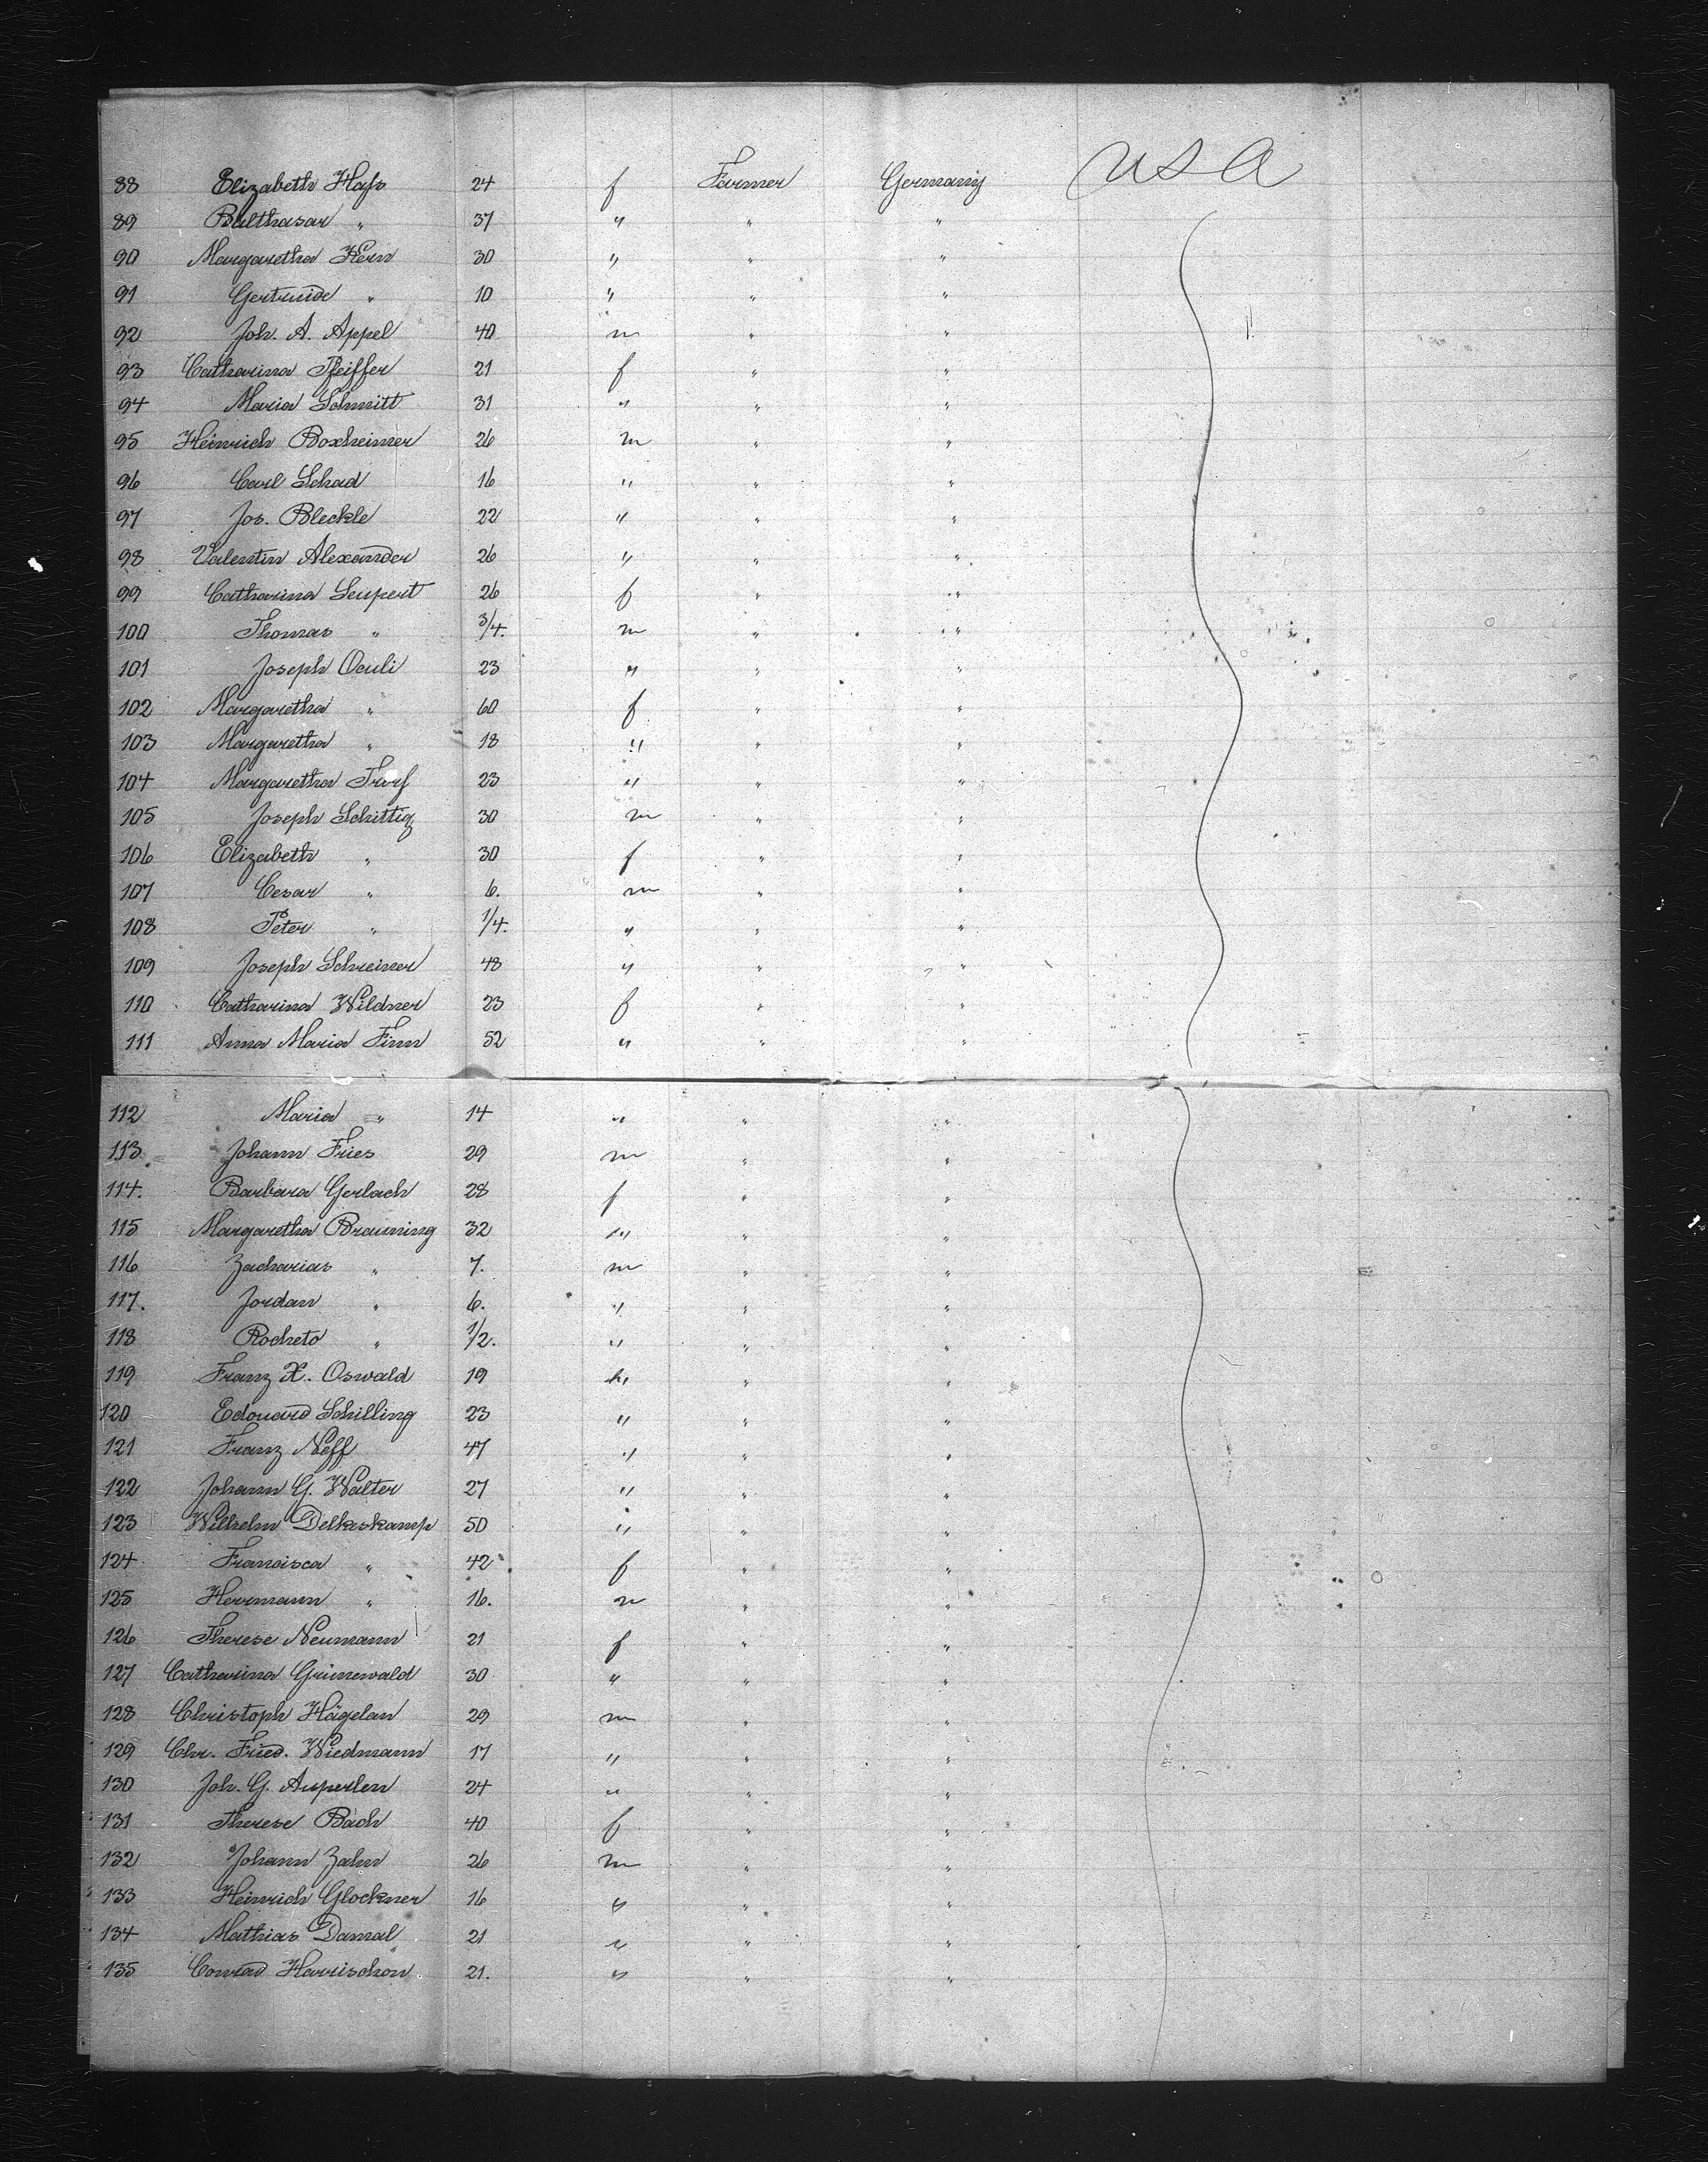 88 Elizabeth Hass 24 f Farmer Germany USA
89 Balthasar " 37 " " "
90 Margaretha Kern 30 " " "
91 Gertruide " 10 " " "
92 Joh. A. Appel 40 m " "
93 Catharina Pfeiffer 21 f " "
94 Maria Schmitt 31 " " "
95 Heinrich Boxheimer 26 m " "
96 Carl Schad 16 " " "
97 Jos. Bleckle 22 " " "
98 Valentin Alexander 26 " " "
99 Catharina Seupert 26 f " "
100 Thomas " 3/4. m " "
101 Joseph Oculi 23 " " "
102 Margaretha " 60 f " "
103 Margaretha " 18 " " "
104 Margaretha 23 " " "
105 Joseph Schittig 30 m " "
106 Elizabeth " 30 f " "
107 Cesar " 6. m " "
108 Peter " 1/4. " " "
109 Joseph Schreiner 48 " " "
110 Catharina Wildner 23 f " "
111 Anna Maria Finn 52 " " "
112 Maria " 14 " " "
113 Johann Fries 29 m " "
114. Barbara Gerlach 28 f " "
115 Margaretha Brauning 32 " " "
116 Zacharias " 7. m " "
117. Jordan " 6. " " "
118 Rocheto " 1/2. " " "
119 Franz X. Oswald 19 " " "
120 Edouard Schilling 23 " " "
121 Franz Neff 47 " " "
122 Johann G. Walter 27 " " "
123 Wilhelm Delkeskamp 50 " " "
124 Francisca " 42 f " "
125 Hermann " 16. m " "
126 Therese Neumann 21 f " "
127 Catharina Grünewald 30 " " "
128 Christoph Hägelan 29 m " "
129 Chr. Fried. Wiedmann 17 " " "
130 Joh. G. Auperlen 24 " " "
131 Therese Bach 40 f " "
132 Johann Zahn 26 m " "
133 Heinrich Glockner 16 " " "
134 Mathias Damal 21 " " "
135 Conrad Harrischon 21. " " "